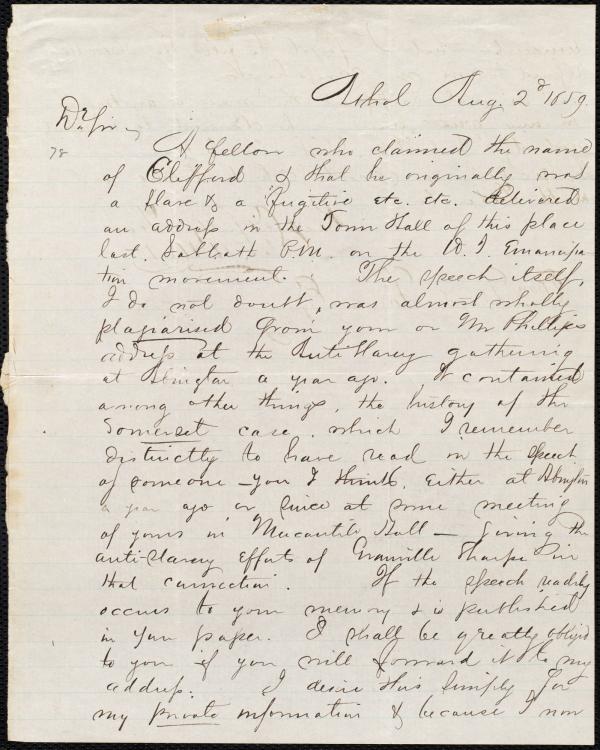 Athol Aug. 2d 1859.
Dr Sir,
78
A fellow who claimed the name
of Clifford & that he originally was
a slave & a fugitive etc. etc. delivered
an address in the Town Hall of this place
last Sabbath P.M. on the W. I. Emancipa
tion movement. The speech itself,
I do not doubt, was almost wholly
plagiarised from your or Mr Phillips
address at the Anti Slavery gathering
at Abington a year ago. It contained
among other things, the history of the
Somerset case, which I remember
distinctly to have read in the speech
of someone - you I think, either at Abington
a year ago or since at some meeting
of yours in Mercantile Hall - giving the
anti-slavery efforts of Granville Sharpe in
that connection. If the speech readily
occurs to your memory & is published
in your paper. I shall be greatly obliged
to you if you will forward it to my
address. I desire this simply for
my private information & because I now